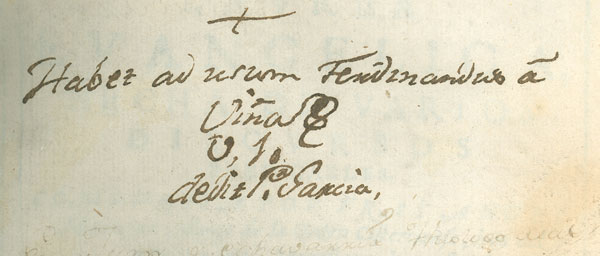 Habet ad usum Ferdinandus â
Viña
V, J.
dedit P.ᵉ Garcia,